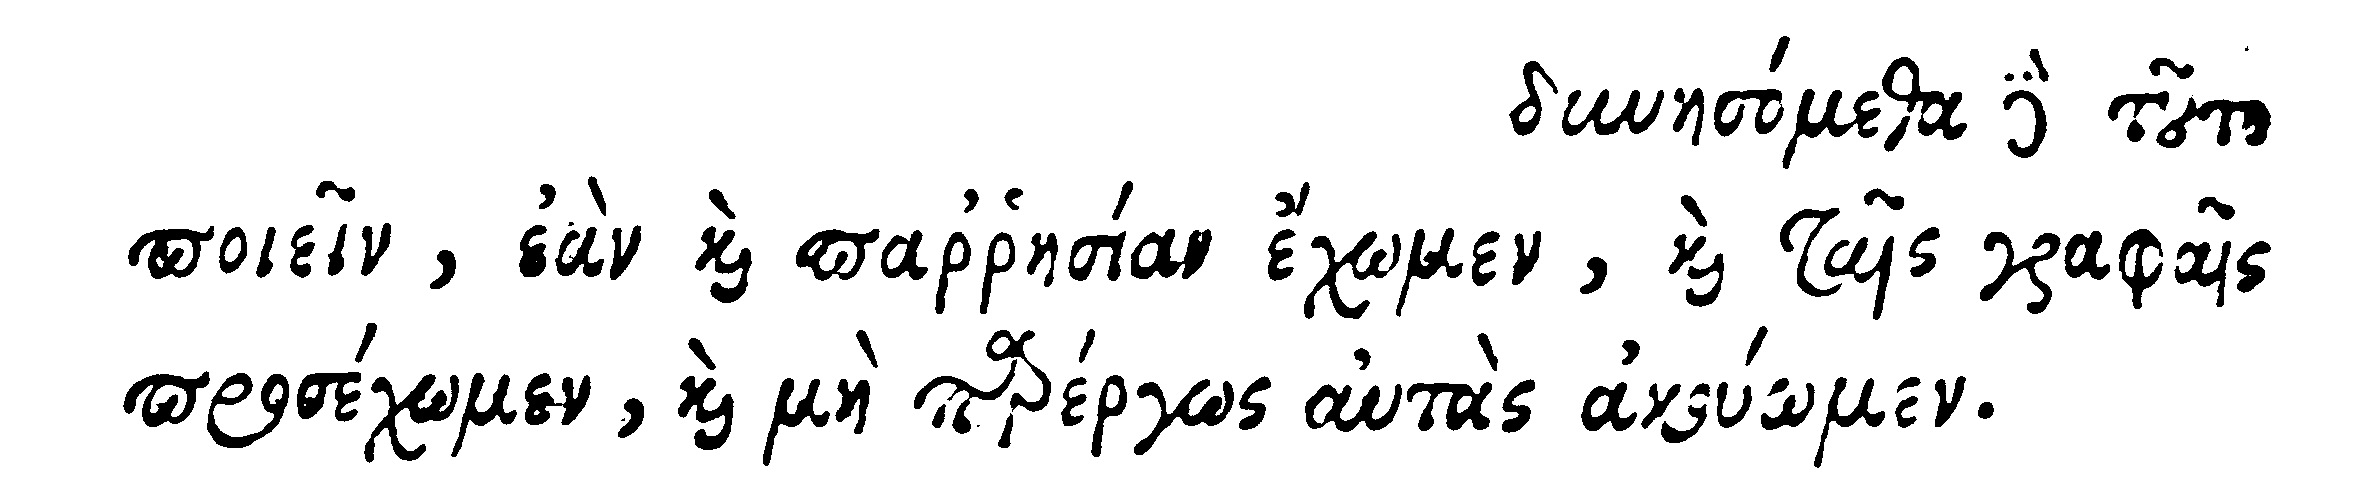 δυνησόμεθα δὲ τοῦτο
ποιεῖν, ἐὰν καὶ παῤῥησίαν ἔχωμεν, καὶ ταῖς γραφαῖς
προσέχωμεν, καὶ μὴ παρέργως αὐτὰς ἀκούωμεν.